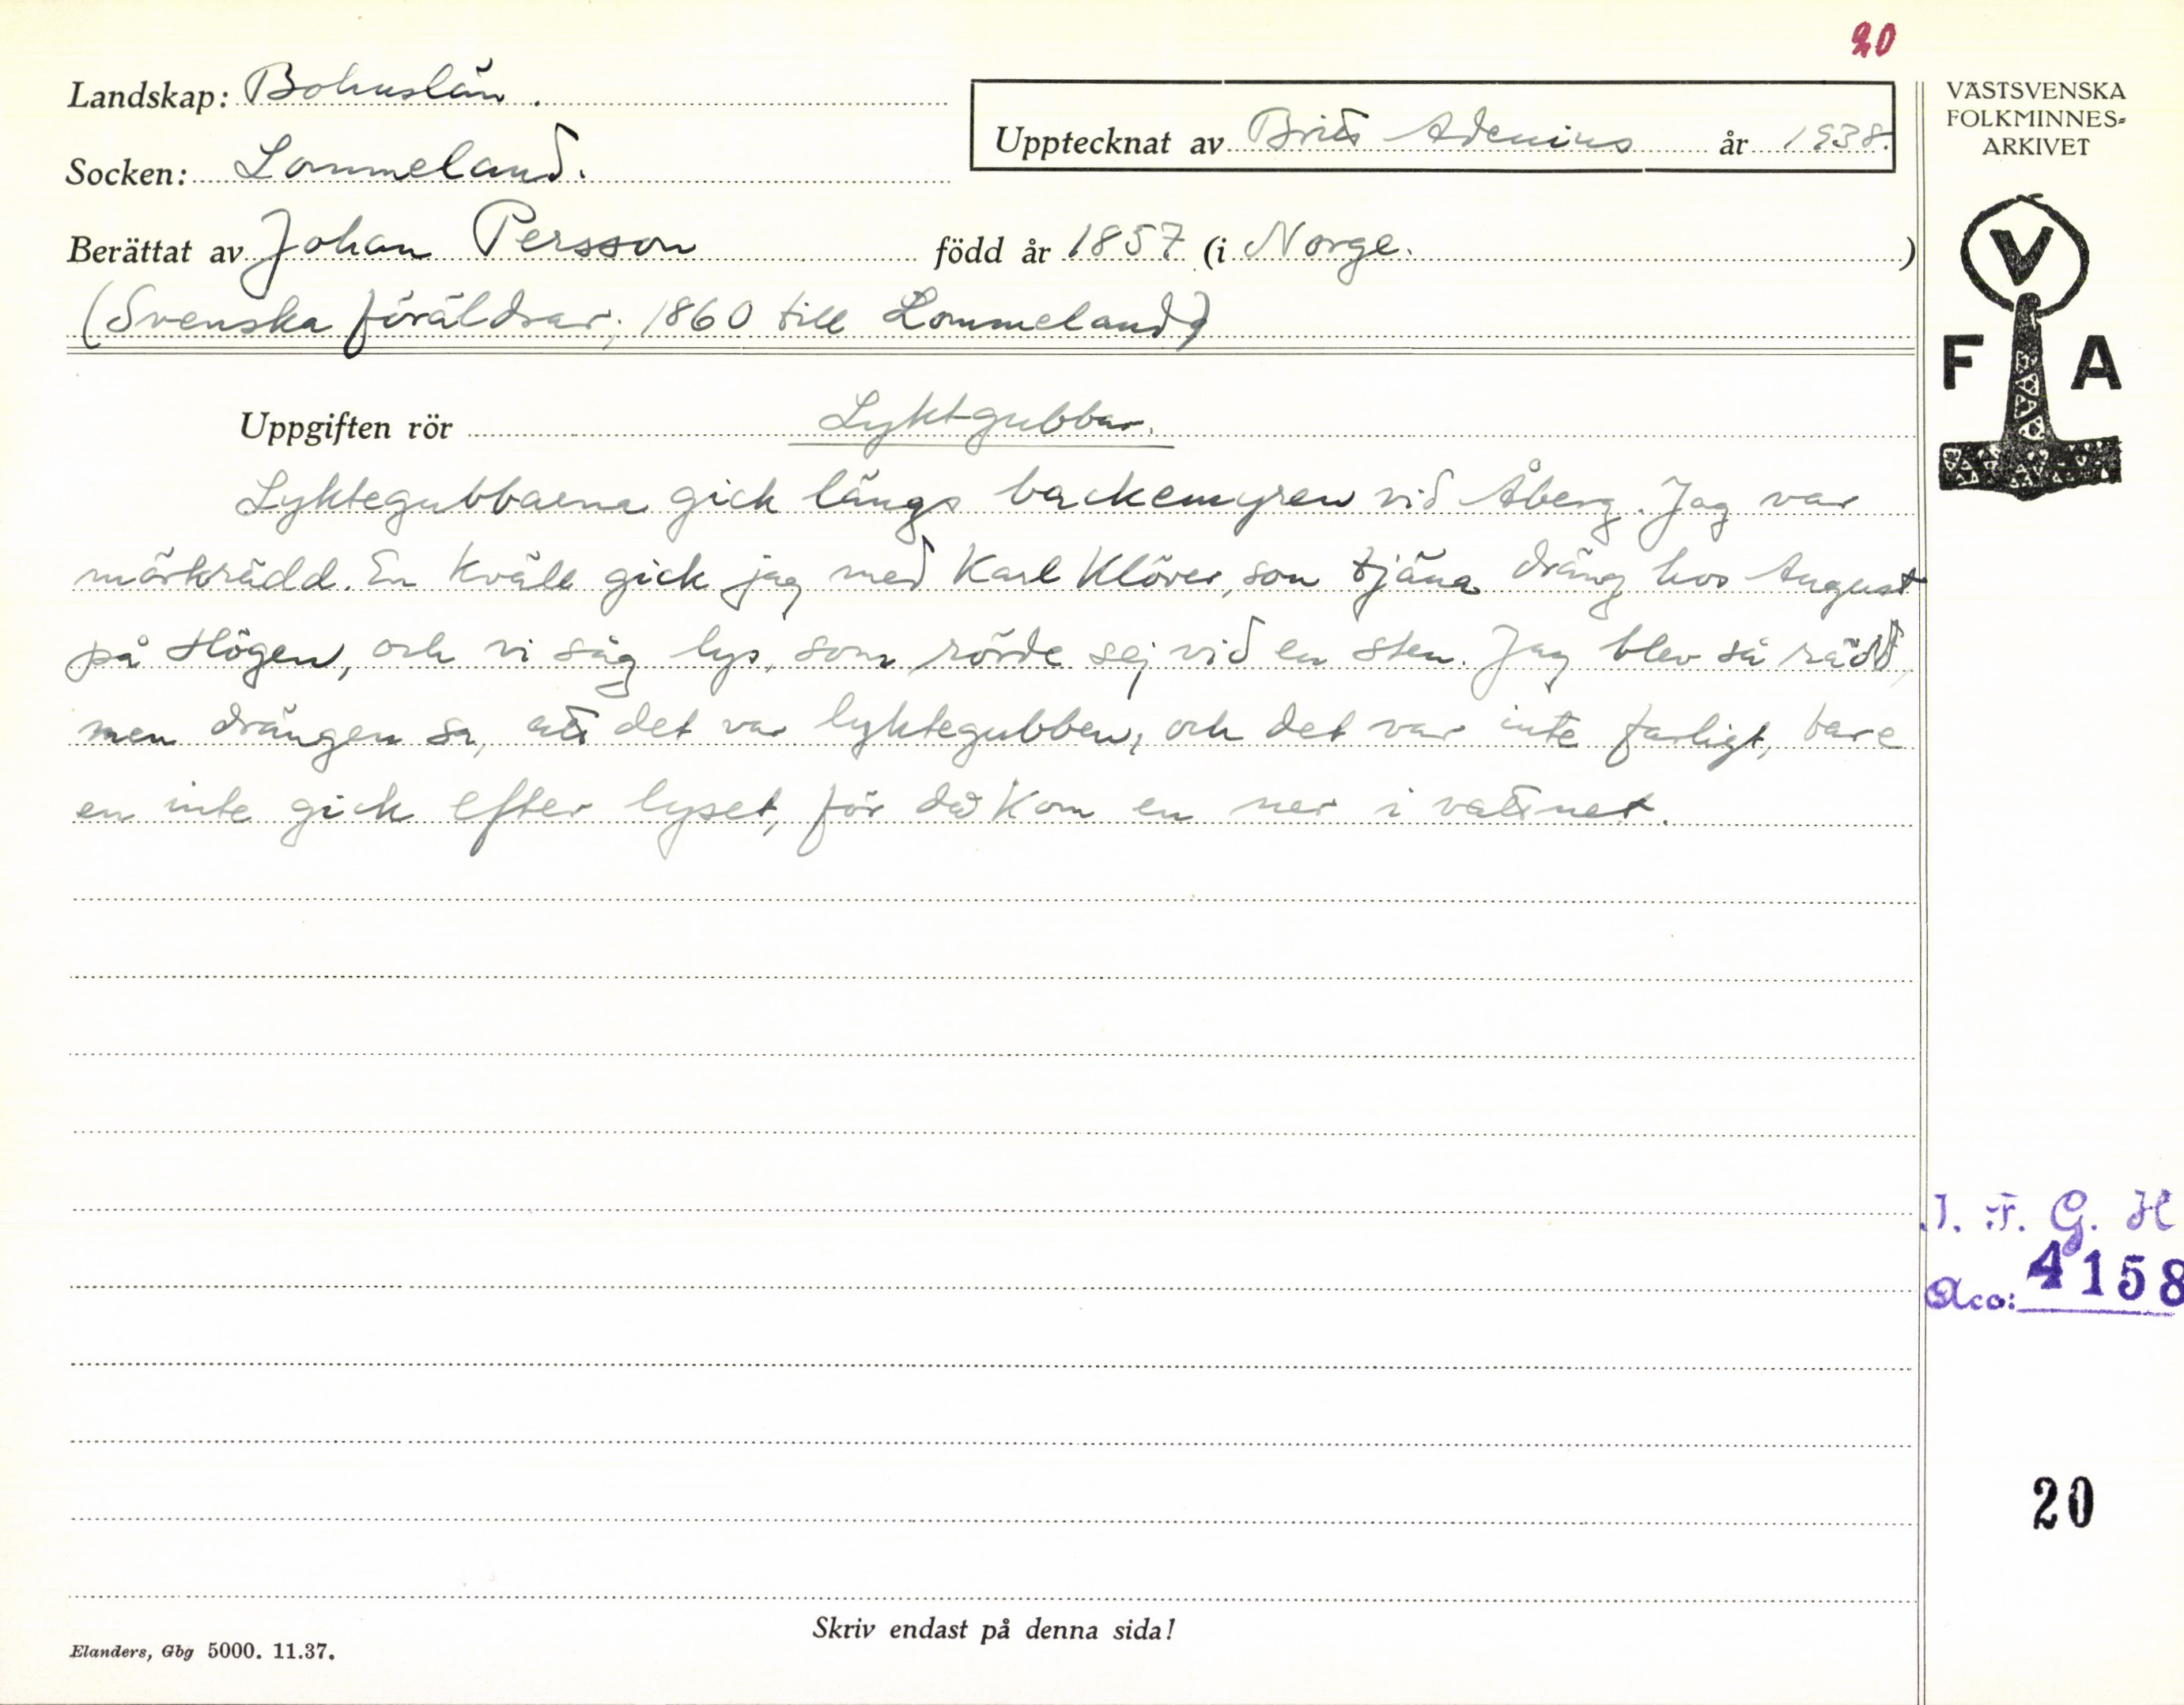 20
Landskap: Bohuslän.
Upptecknat av Britt Adenius år 1938.
Socken: Lommeland.
Berättat av Johan Persson född år 1857 (i Norge.)
(Svenska föräldrar; 1860 till Lommeland)
Uppgiften rör Lyktgubbar.
Lyktegubbarna gick längs backemyren vid Åberg. Jag var
mörkrädd. En kväll gick jag med Karl Klöver, som tjäna dräng hos August
på Högen, och vi såg lys, som rörde sej vid en sten. Jag blev så rädd,
men drängen sa, att det var lyktegubben, och det var inte farligt, bare
en inte gick efter lyset, för då kom en ner i vattnet.
Skriv endast på denna sida!
Elanders, Gbg 5000. 11.37.
VÄSTSVENSKA
FOLKMINNES-
ARKIVET
V
F A
I. F. G. H
Acc: 4158
20